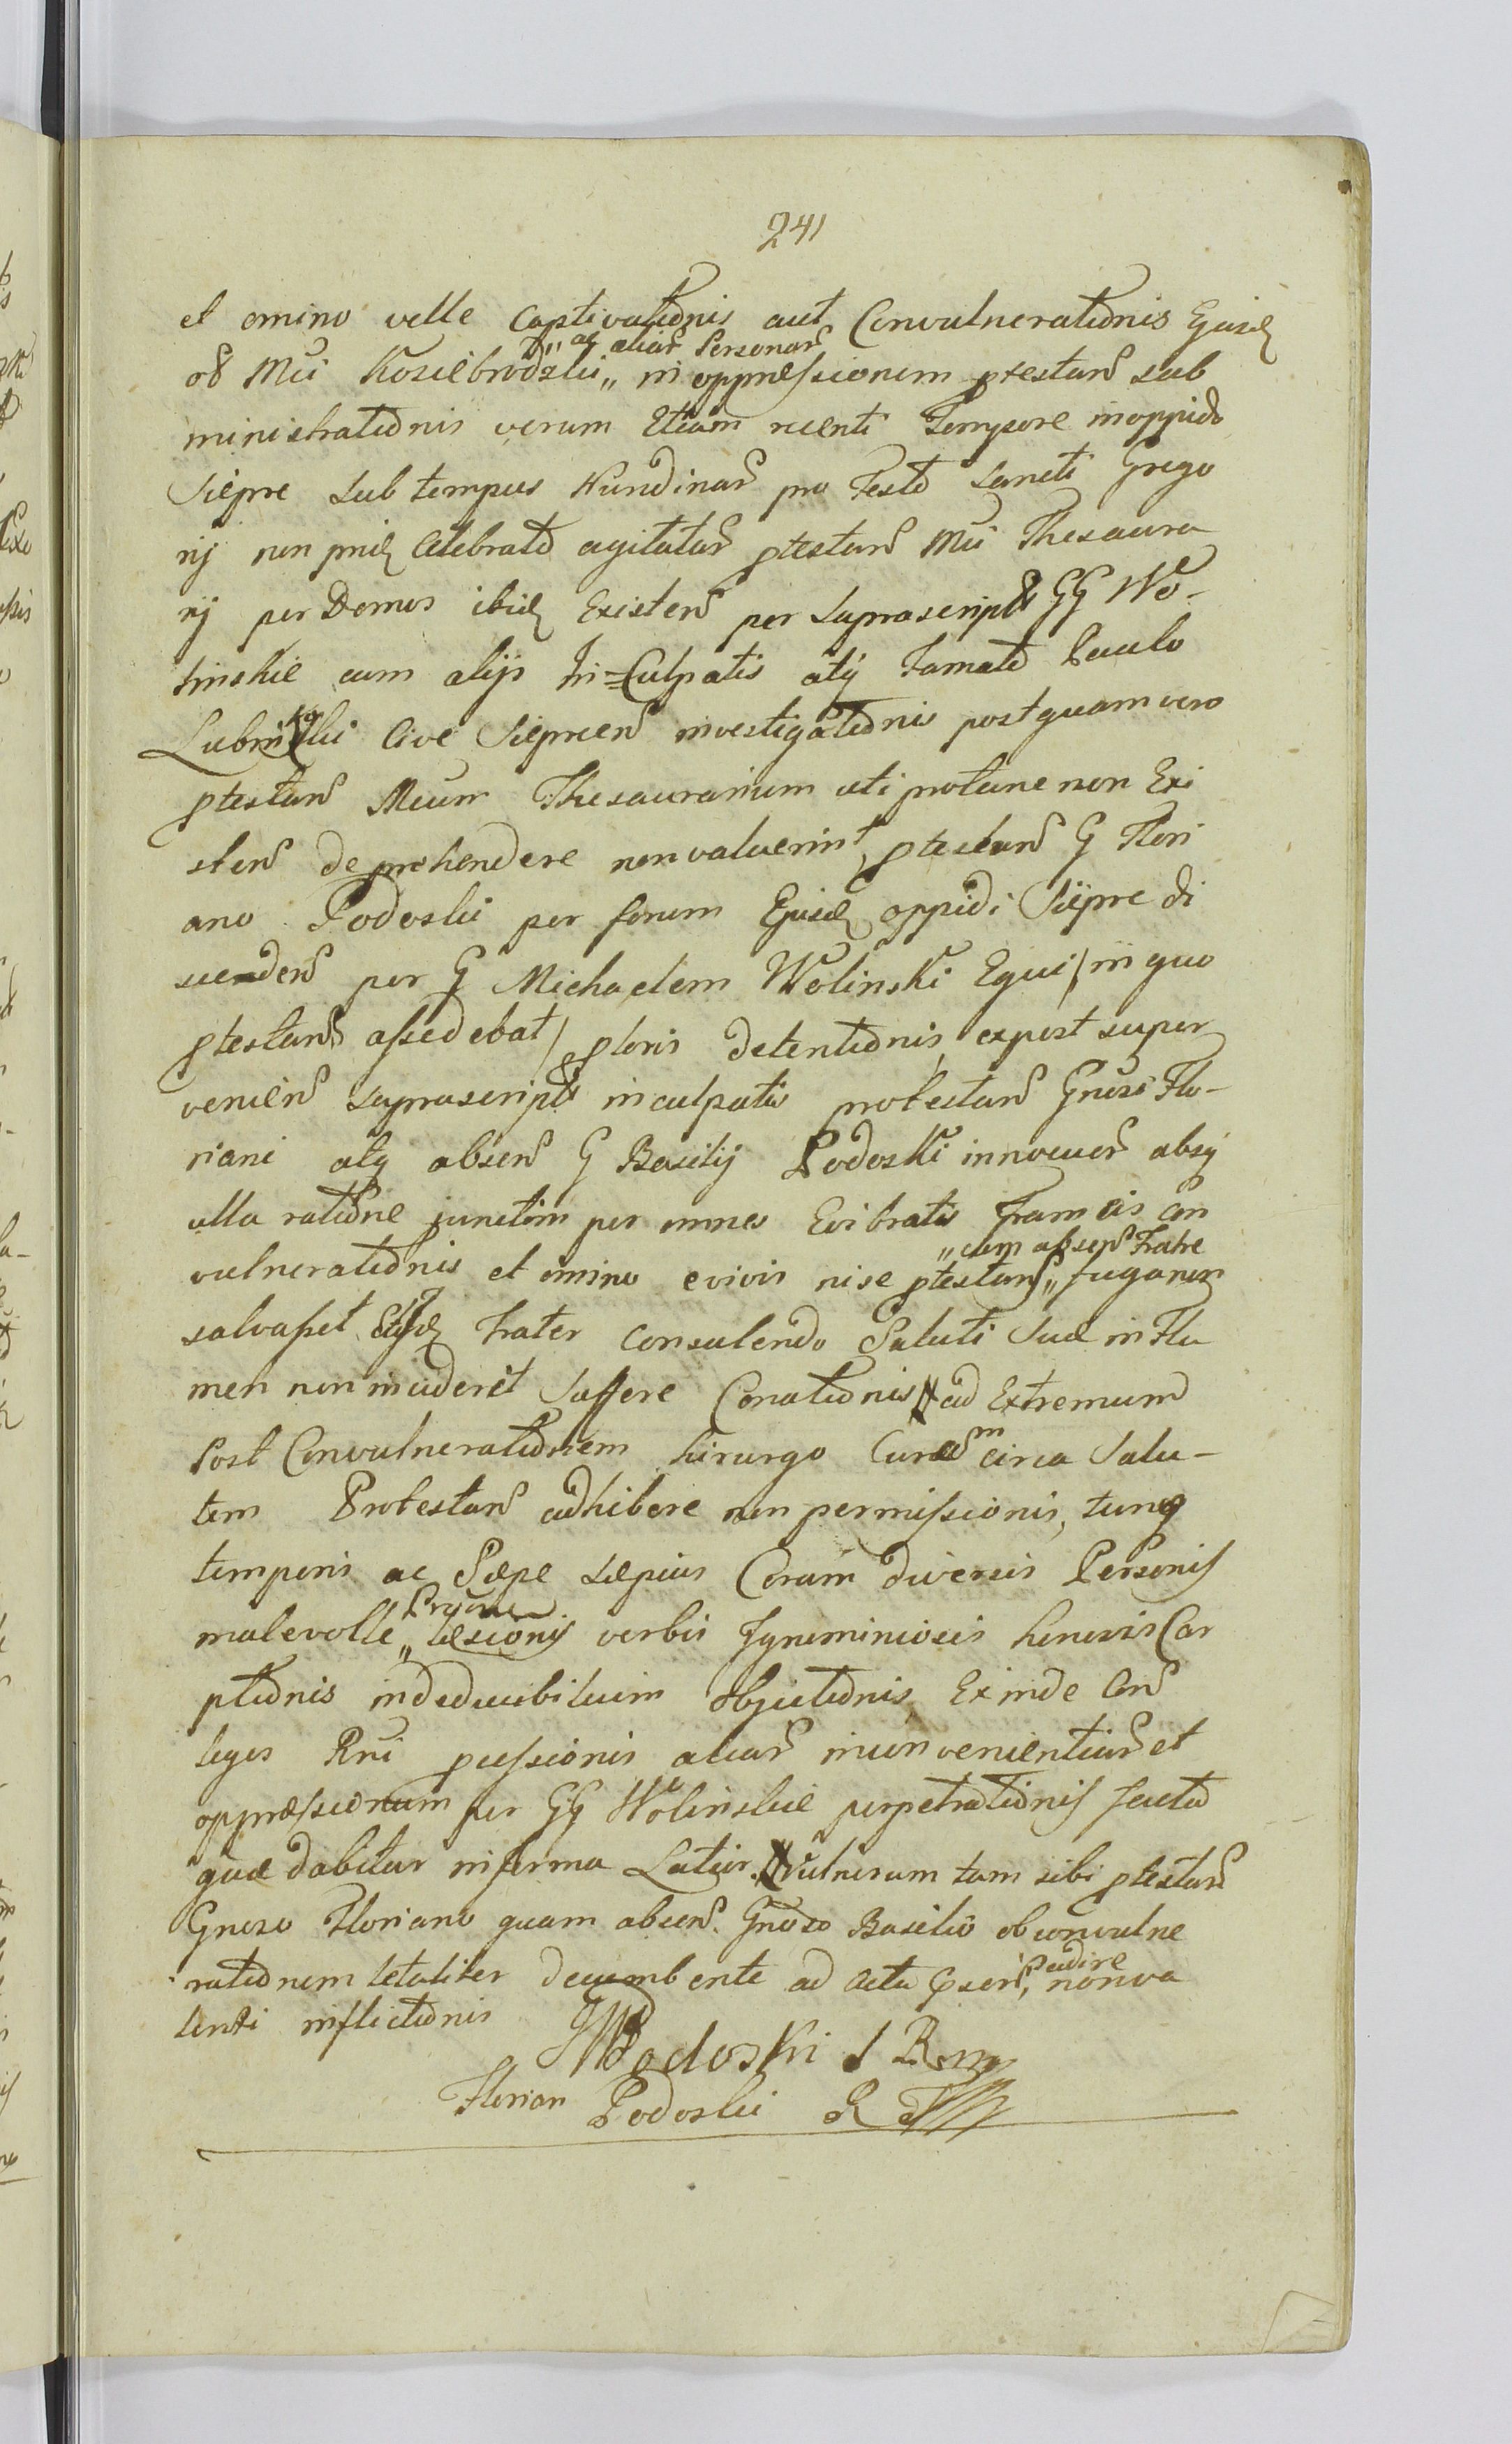 241
et omino velle captivationis aut Convulnerationis Ejusd
ob Mci Kosiebrodzki „ ac aliar Personar „ in oppressionem ptestan sub
ministrationis verum Etiam recenti Tempore in oppido
Sieprc sub tempus Nundinar pro Festo Sancti Grego
rij non prid Celebrato agitatar ptestan Mci Thesaura
rij per Domos ibid Existen per suprascriptos GG Wo-
linskie cum alijs In=Culpatis atq Famato Paulo
Lubin ski Cive Sieprcen investigationis postquam vero
ptestan Mcum Thesaurarium uti protunc non Exi
sten deprehendere non valuerint, ptestan G Flori
ano Podoski per forum Ejusd oppidi Sieprc di
scenden per G Michaelem Wolinski Equi / in quo
ptestans assedebat / ptoris detentionis, expost super
venien suprascriptos inculpatos protestan Gnosi Flo-
riani atq absen G Basilij Podoski innocuor absq
ulla ratione junctim per omnes Evibratis Frameis con
vulnerationis et omino e vivis nise ptestans „ cum absen Fratre „ fugam
salvasset Ejusd Frater consulendo Saluti suae in Flu
men non inciderit Conationis ad Extremum
Post Convulnerationem hirurgo Curam circa Salu-
tem Protestan adhibere non permissionis, tunq
temporis ac Saepe saepius Coram diversis Personis
malevolle „ laesionis verbis Ignominiosis honoris Car
ptionis indeducibilium objectionis Exinde Con
leges Rni pcussionis aliar inconvenientiar et
oppressionum per GG Wolinskie perpetrationis facta
quae dabitur in forma Latior. Vulnerum tam sibi ptestan
Gnoso Floriano quam absen. Gnoso Basilio ob convulne
rationem letaliter decumbente ad acta psen, venire non va
lenti inflictionis
Podoski
Florian Podoski